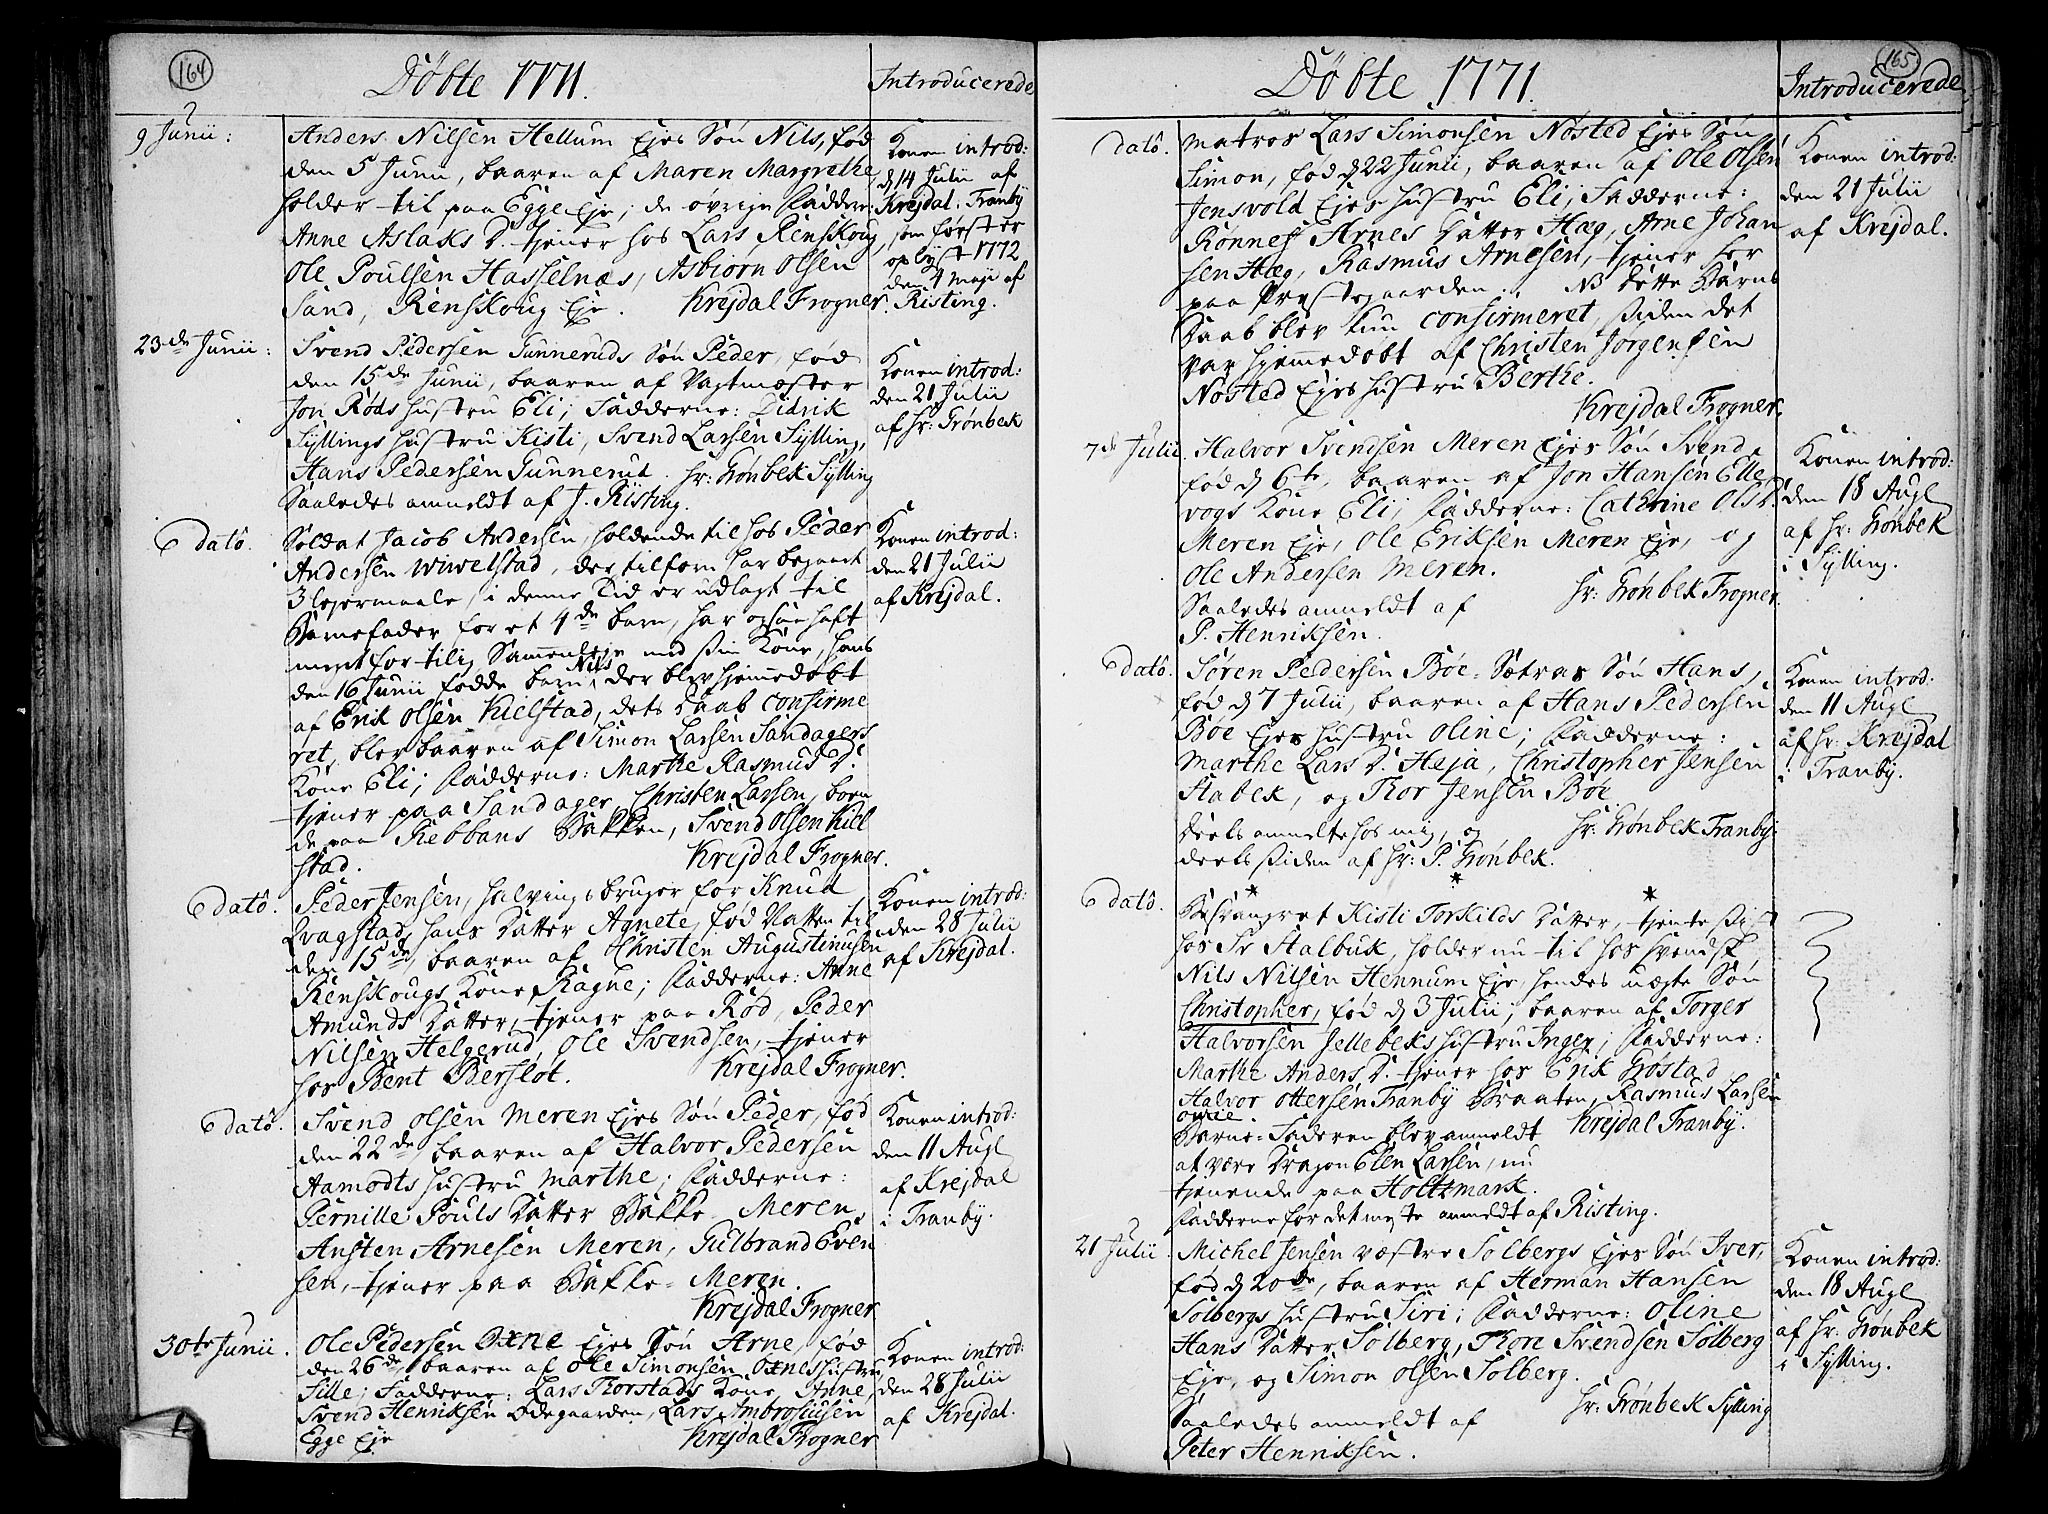 164
Döbte 1771.
Introducerede
9 Junii:
Anders Nilsen Hellum Ejes Sön Nils, fød
den 5 Junii, baaren af Maren Margrethe
holder til paa Egge Eje; de øvrige Faddere:
Anne Aslaks D. tjener hos Lars Renskoug,
Ole Poulsen Hasselnæs, Asbiørn Olsen
Sand, Renskoug Eje. Krejdal Frogner.
Konen introd:
d 14 Julii af
Krejdal. Tranby
som først er
oplyst 1772
den 4 Maji af
Risting.
23de Junii:
Svend Pedersen Gunneruds Sön Peder, fød
den 15de Junii, baaren af Vagtmæster
Jon Röds Hustru Eli; Fadderne: Didrik
Syllings Hustru Kisti, Svend Larsen Sylling,
Hans Pedersen Gunnerud. Hr: Grönbek Sylling
Saaledes anmeldt af J. Risting.
Konen introd:
den 21 Julii
af Hr: Grönbek
Dato.
Soldat Jacob Andersen, holdende til hos Peder
Andersen Wiwelstad, der tilforn har begaaet
3 Lejermaale, i denne Tid er udlagt til
Barnefader for et 4de barn, har ogsaa haft
meget for tilig Samenleje med sin Kone, hans
den 16 Junii fødde barn Nils, der blev hjemmedøbt
af Erik Olsen Kielstad, dets Daab confirme
ret, blev baaren af Simon Larsen Sandagers
Kone Eli; Fadderne: Marthe Rasmus D.
tjener paa Sandager, Christen Larsen, boen
de paa Rebbans Bakken, Svend Olsen Kiel
stad. Krejdal Frogner.
Konen introd:
den 21 Julii
af Krejdal.
Dato.
Peder Jensen, halvings bruger for Knud
Qvagstad, hans Datter Agnete, fød Natten til
den 15de, baaren af Christen Augustinusen
Renskougs Kone Ragne; Fadderne: Anne
Amunds Datter, tjener paa Röd, Peder
Nilsen Helgerud, Ole Svendsen, tjener
hos Bent Berflot. Krejdal Frogner.
Konen introd:
den 28 Julii
af Krejdal.
Dato.
Svend Olsen Meren Ejes Sön Peder, fød
den 22de baaren af Halvor Pedersen
Aamodts Hustru Marthe; Fadderne:
Pernille Pouls Datter Bakke-Meren,
Ansten Arnesen Meren, Gulbrand Even
sen, tjener paa Bakke-Meren.
Krejdal Frogner
Konen introd:
den 11 Augl
af Krejdal
i Tranby.
30te Junii.
Ole Pedersen Oxne Ejes Sön Arne, fød
den 26de, baaren af Ole Simonsen Oxnes Hustru
Sille; Fadderne: Lars Thorstads Kone Anne,
Svend Henriksen Ödegaarden, Lars Ambrosiusen
Egge Eje Krejdal Frogner
Konen introd:
den 28 Julii
af Krejdal.
165
Döbte 1771.
Introducerede
Dato.
Matros Lars Simonsen Nösted Ejes Sön
Simon, fød d 22 Junii, baaren af Ole Olsen
Jensvold Ejes Hustru Eli; Fadderne:
Rönnes Arnes Datter Hæg, Arne Johan
sen Hæg, Rasmus Arnesen, tjener her
paa Prestegaarden. NB dette Barns
Daab blev kun confirmeret, siden det
var hjemmedøbt af Christen Jörgensen
Nösted Ejes Hustru Berthe.
Krejdal Frogner.
Konen introd:
den 21 Julii
af Krejdal.
7de Julii
Halvor Svendsen Meren Ejes Sön Svend,
fød d 6te, baaren af Jon Hansen Elle
vogs Kone Eli; Fadderne: Cathrine Ols D.
Meren Eje, Ole Eriksen Meren Eje, og
Ole Andersen Meren.
Saaledes anmeldt af Hr: Grönbek Frogner.
P. Henriksen.
Konen introd:
den 18 Augl
af Hr: Grönbek
i Sylling.
Dato.
Sören Pedersen Böe-Sætras Sön Hans,
fød d 7 Julii, baaren af Hans Pedersen
Böe Ejes Hustru Oline; Fadderne:
Marthe Lars D. Heja, Christopher Jensen
Stabek, og Thor Jensen Böe
Deels anmelte hos mig, og Hr: Grönbek Tranby
deels siden af Hr: P. Grönbek.
Konen introd:
den 11 Augl
af Hr: Krejdal
i Tranby.
Dato.
Besvangret Kisti Torkilds Datter, tjente sist
hos Sr Stalbuk, holder nu til hos
Nils Nilsen Hennum Eje, hendes uægte Sön
Christopher, fød d 3 Julii, baaren af Torger
Halvorsen Jellebeks Hustru Inger; Fadderne:
Marthe Anders D. tjener hos Erik Gröstad
Halvor Ottersen Tranby Braaten, Rasmus Larsen
Barne-Faderen blev anmeldt Krejdal Tranby.
at være Dragon Elen Larsen, nu
tjenende paa Holtzmark.
Fadderne for det meste anmeldt af Risting.
21 Julii.
Michel Jensen væstre Solbergs Ejes Sön Iver,
fød d 20de, baaren af Herman Hansen
Solbergs Hustru Siri; Fadderne: Oline
Hans Datter Solberg, Thore Svendsen Solberg
Eje, og Simon Olsen Solberg.
Saaledes anmeldt af Hr: Grönbek Sylling
Peter Henriksen.
Konen introd:
den 18 Augl
af Hr: Grönbek
i Sylling.